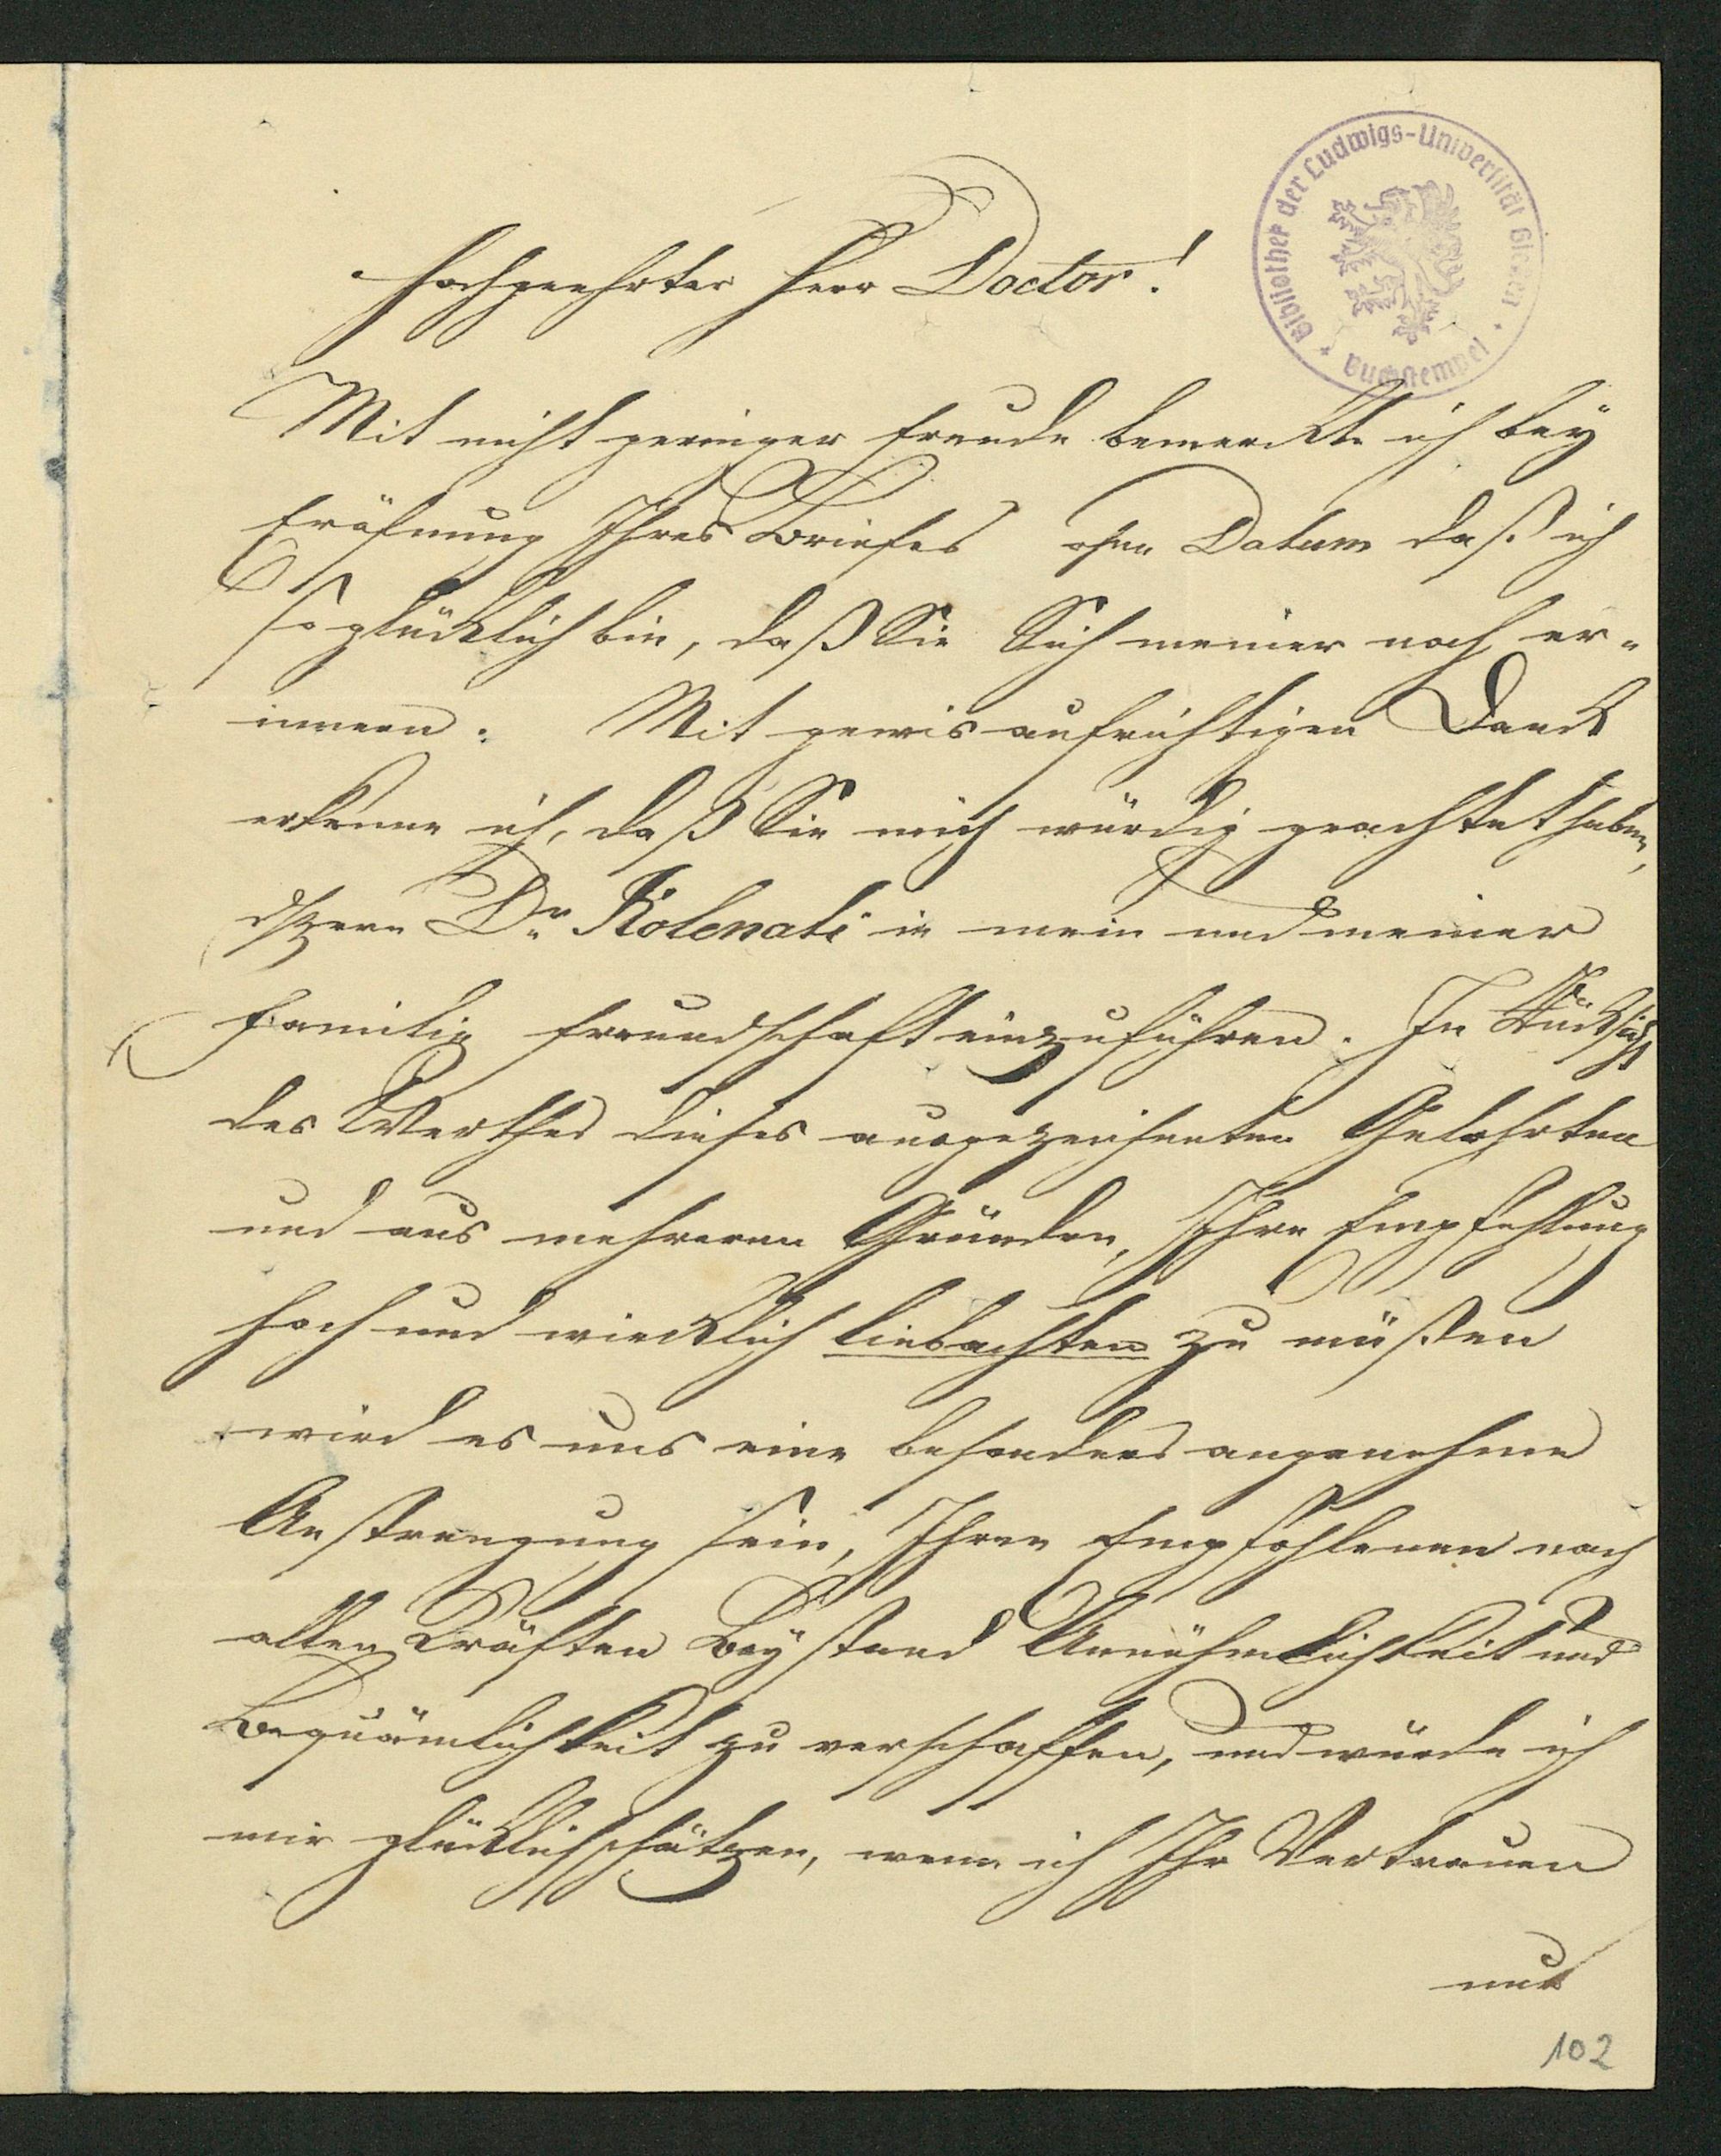 Bibliothek der Ludwigs-Universität Giessen
Buchstempel
Hochgeehrter Herr Doctor!
Mit nicht geringer Freude bemerckte ich bey
Eröfnung Ihres Briefes ohne Datum daß ich
so glücklich bin, daß Sie Sich meiner noch er-
innern. Mit gewis aufrichtigen Danck
erkenne ich, daß Sie mich würdig geachtet haben,
Dr Kolenati in mein und meiner
Familie Freundschaft einzuführen. In Rücksicht
des Werthes dieses ausgezeichneten Gelehrten
und aus mehreren Gründen, Ihre Empfehlung
hoch und wircklich liebachten zu müßen
wird es uns eine besonders angenehme
Anstrengung sein, Ihren Empfohlenen nach
allen Kräften Beystand Annehmlichkeit und
Bequämlichkeit zu verschaffen, und würde ich
mir glücklich schätzen, wenn ich Ihr Vertrauen
nur
102